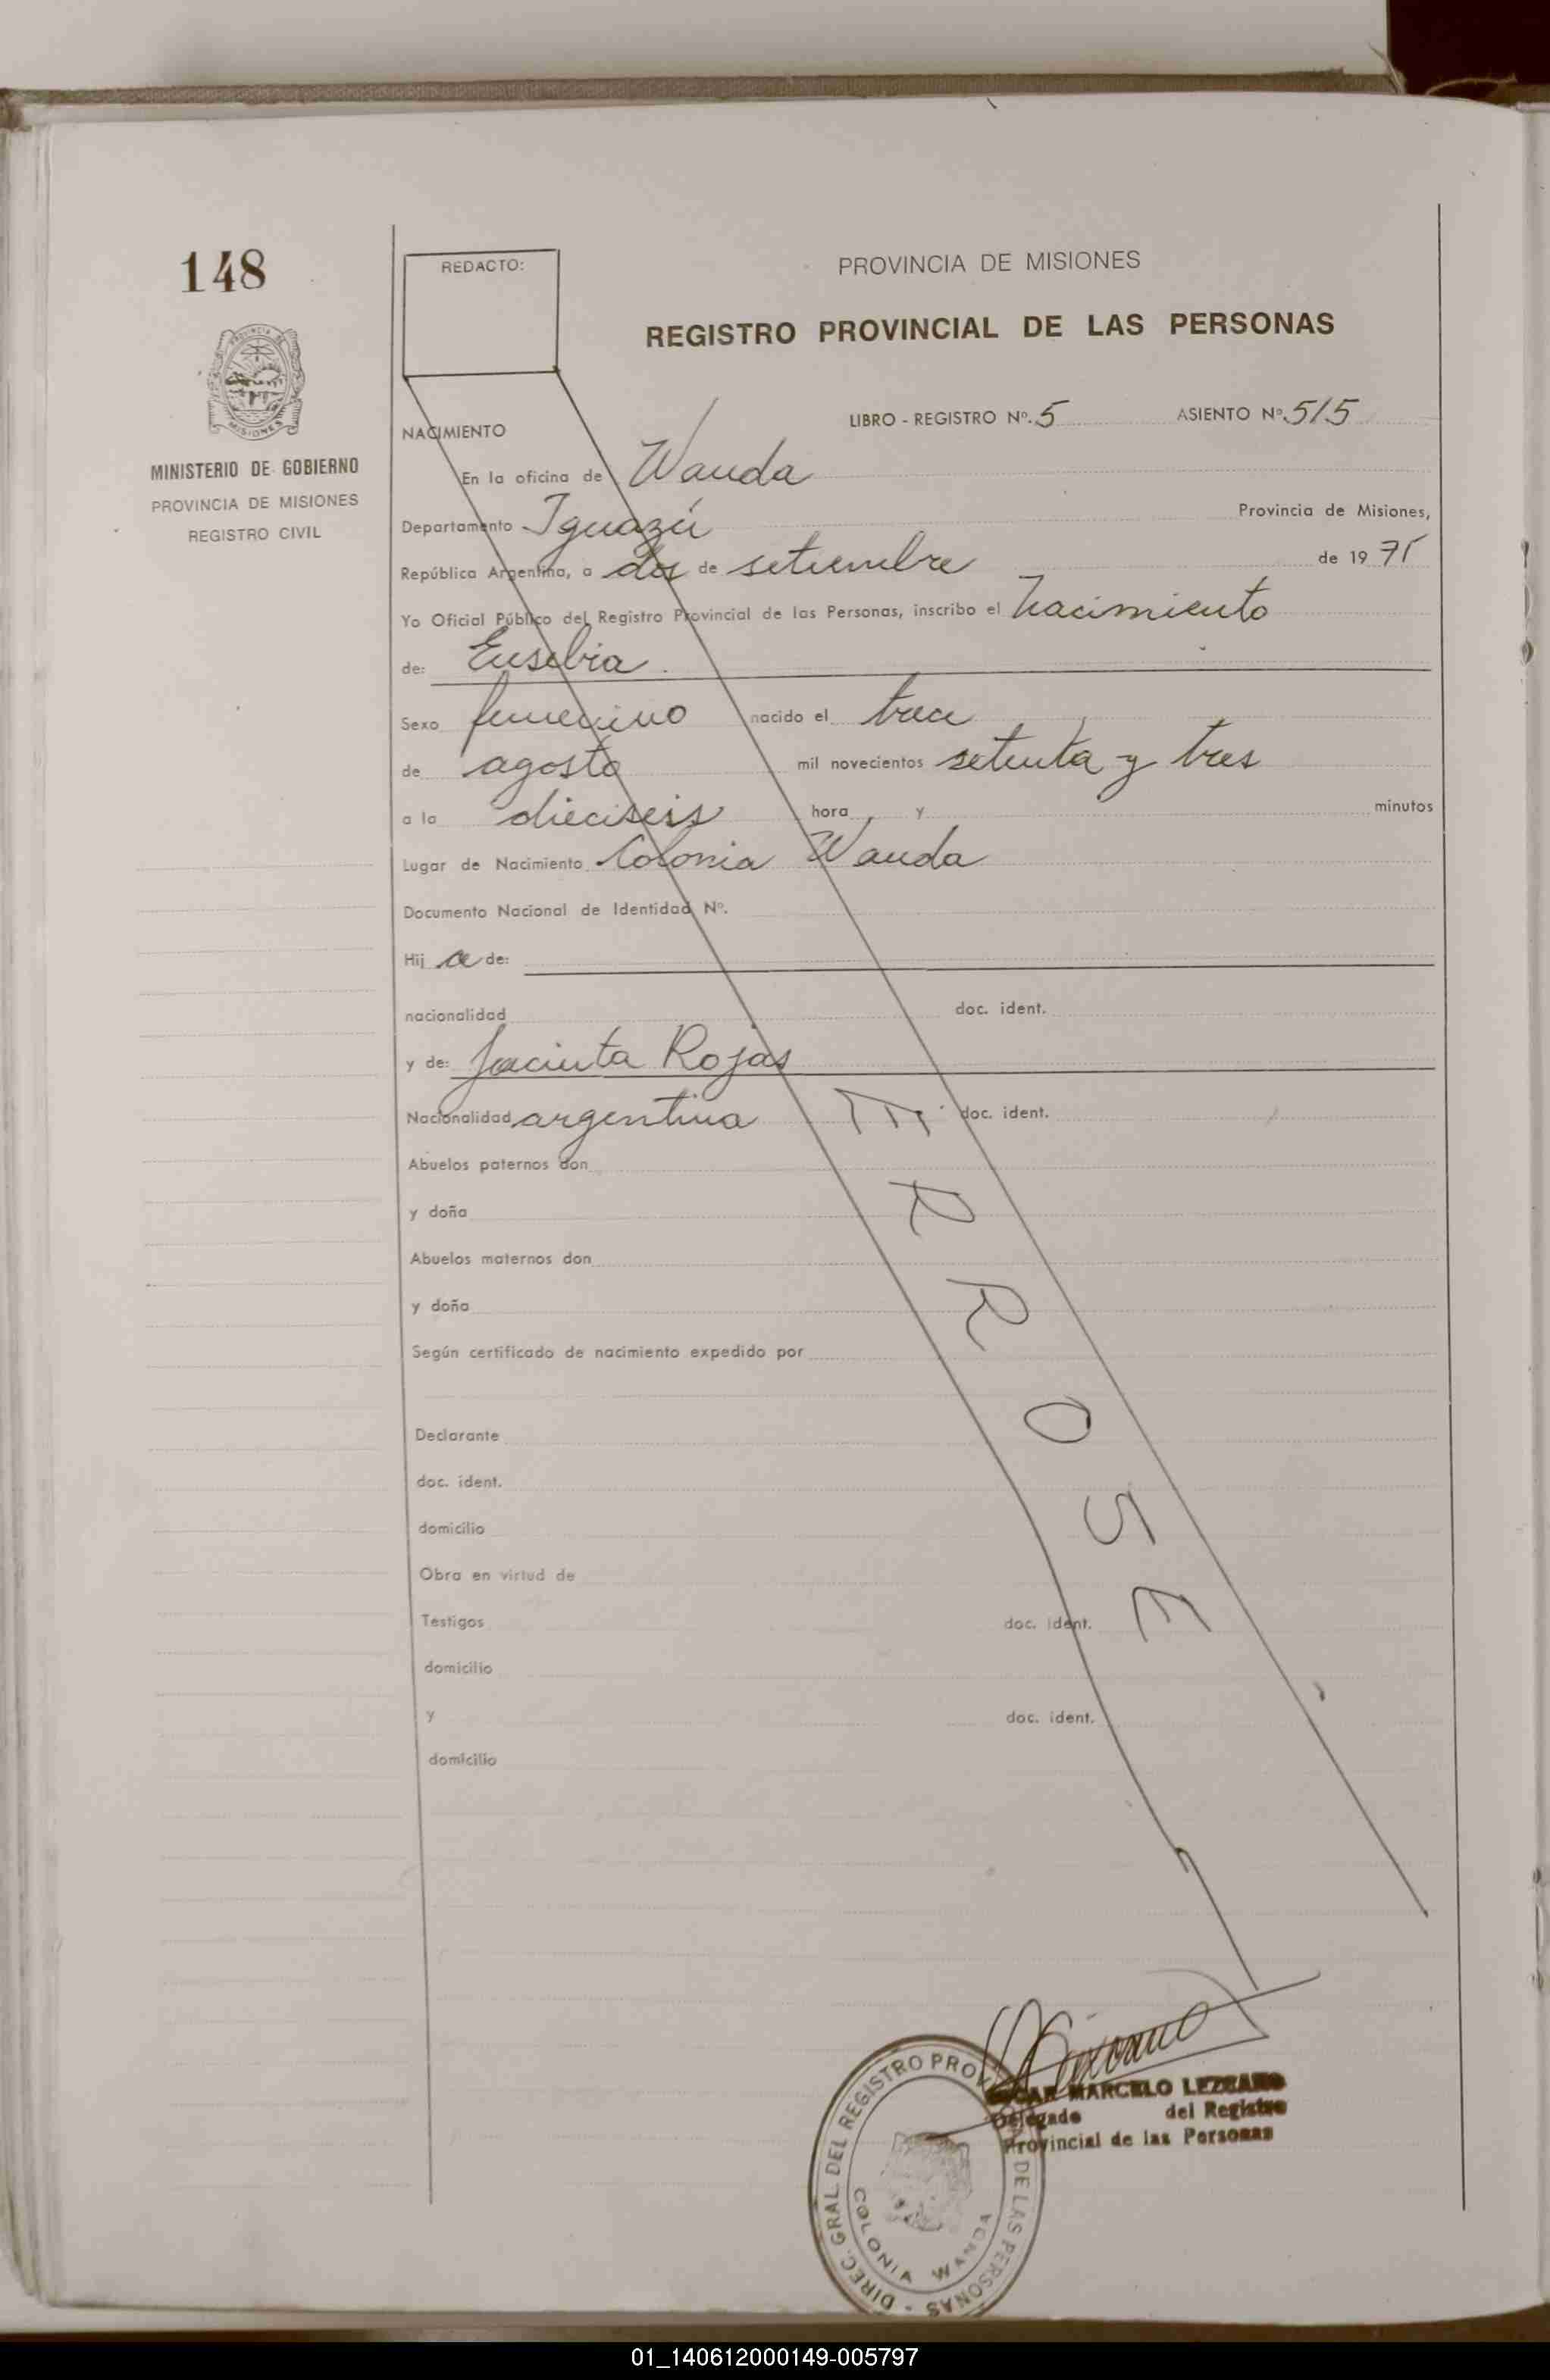 148
REDACTO:
PROVINCIA DE MISIONES
REGISTRO PROVINCIAL DE LAS PERSONAS
MISIONES
MINISTERIO DE GOBIERNO
PROVINCIA DE MISIONES
REGISTRO CIVIL
LIBRO - REGISTRO Nº. 5 ASIENTO Nº 515
NACIMIENTO
En la oficina de Wanda
Departamento Iguazú Provincia de Misiones,
República Argentina, a dos de setiembre de 19 75
Yo Oficial Público del Registro Provincial de las Personas, inscribo el Nacimiento
de: Eusebia
Sexo femenino nacido el trece
de agosto mil novecientos setenta y tres
a la dieciseis hora y minutos
Lugar de Nacimiento Colonia Wanda
Documento Nacional de Identidad Nº.
Hij a de:
nacionalidad doc. ident.
y de: Jacinta Rojas
Nacionalidad argentina doc. ident.
Abuelos paternos don
y doña
Abuelos maternos don
y doña
Según certificado de nacimiento expedido por
Declarante
doc. ident.
domicilio
Obra en virtud de
Testigos doc. ident.
domicilio
y doc. ident.
domicilio
ERROSE
MARCELO LEZCANO
Delegado del Registro
Provincial de las Personas
DIREC. GRAL. DEL REGISTRO PROV. DE LAS PERSONAS -
COLONIA WANDA
01_140612000149-005797